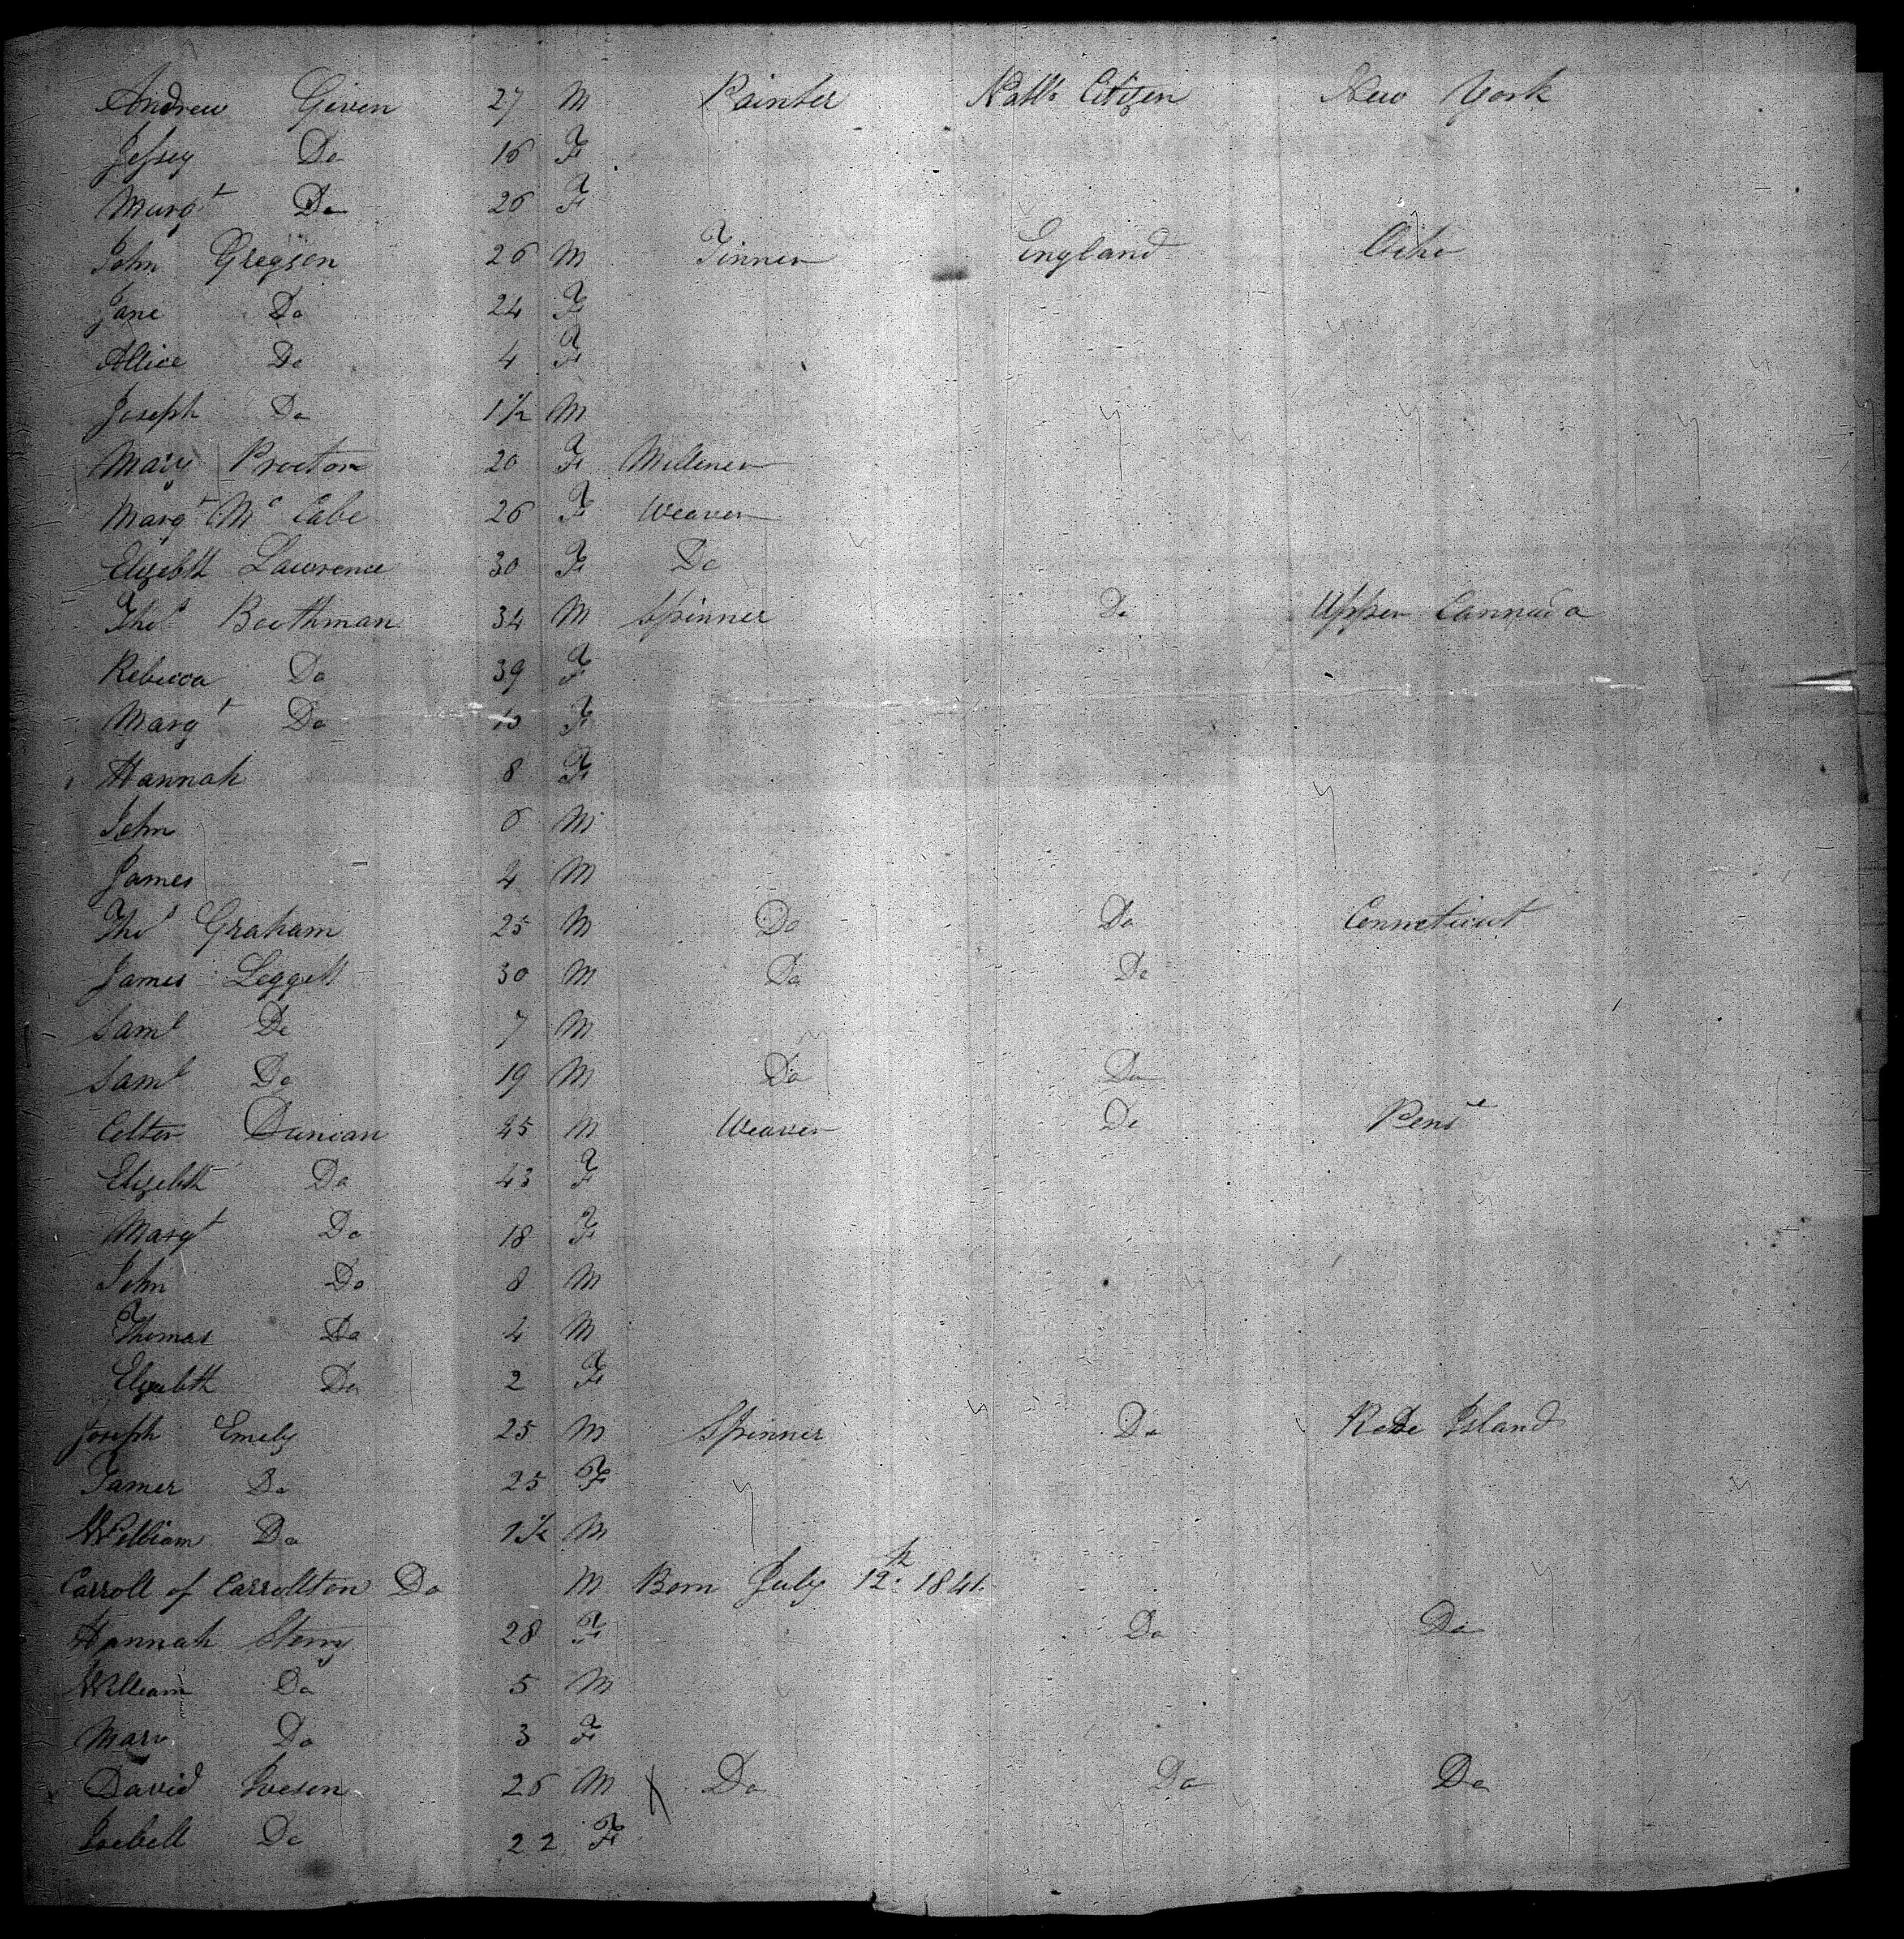 Andrew Given 27 M Painter Natl. Citizen New York
Jessey Do 16 F
Margt Do 26 F
John Gregson 26 M Tinner England Ohio
Jane Do 24 F
Allice Do 4 F
Joseph Do 1½ M
Mary Procton 20 F Millener
Margt Mc Cabe 26 F Weaver
Elizebth Lawrence 30 F Do
Thos Boothman 34 M Spinner Do Upper Cannada
Rebecca Do 39 F
Margt Do 10 F
Hannah 8 F
John 6 M
James 4 M
Thos Graham 25 M Do Do Conneticut
James Leggett 30 M Do Do
Saml Do 7 M
Saml Do 19 M Do Do
Duncan 45 M Weaver Do
Elizebth Do 43 F
Margt Do 18 F
John Do 8 M
Thomas Do 4 M
Elizebth Do 2 F
Joseph Emely 25 M Spinner Do Rode Island
Tamer Do 25 F
William Do 1½ M
Carroll of Carrollton Do M Born July 12th 1841.
Hannah 28 F Do Do
William Do 5 M
Mary Do 3 F
David Iveson 26 M X Do Do Do
Isebell Do 22 F